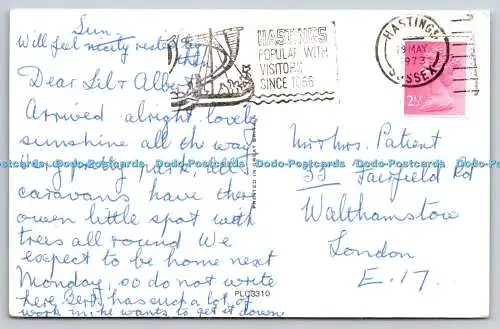 Sun.
Will feel nicely rested by then
Dear Lil & Albert
Arrived alright lovely
sunshine all the way
Very pretty park, all
caravans have there
owen little spot with
trees all round We
expect to be home next
Monday, so do not write
here, Bert has such a lot of
work in, he wants to get it down
HASTINGS
POPULAR WITH
VISITORS
SINCE 1066
HASTINGS
29 MAY
1973
SUSSEX
2½P
Mr & Mrs. Patient
33 Fairfield Rd
Walthamstow
London
E.17.
PRINTED IN GREAT BRITAIN
PLC3310
Dodo-Postcards Dodo-Postcards Dodo-Postcards Dodo-Postcards Dodo-Postcards Dodo-Postcards